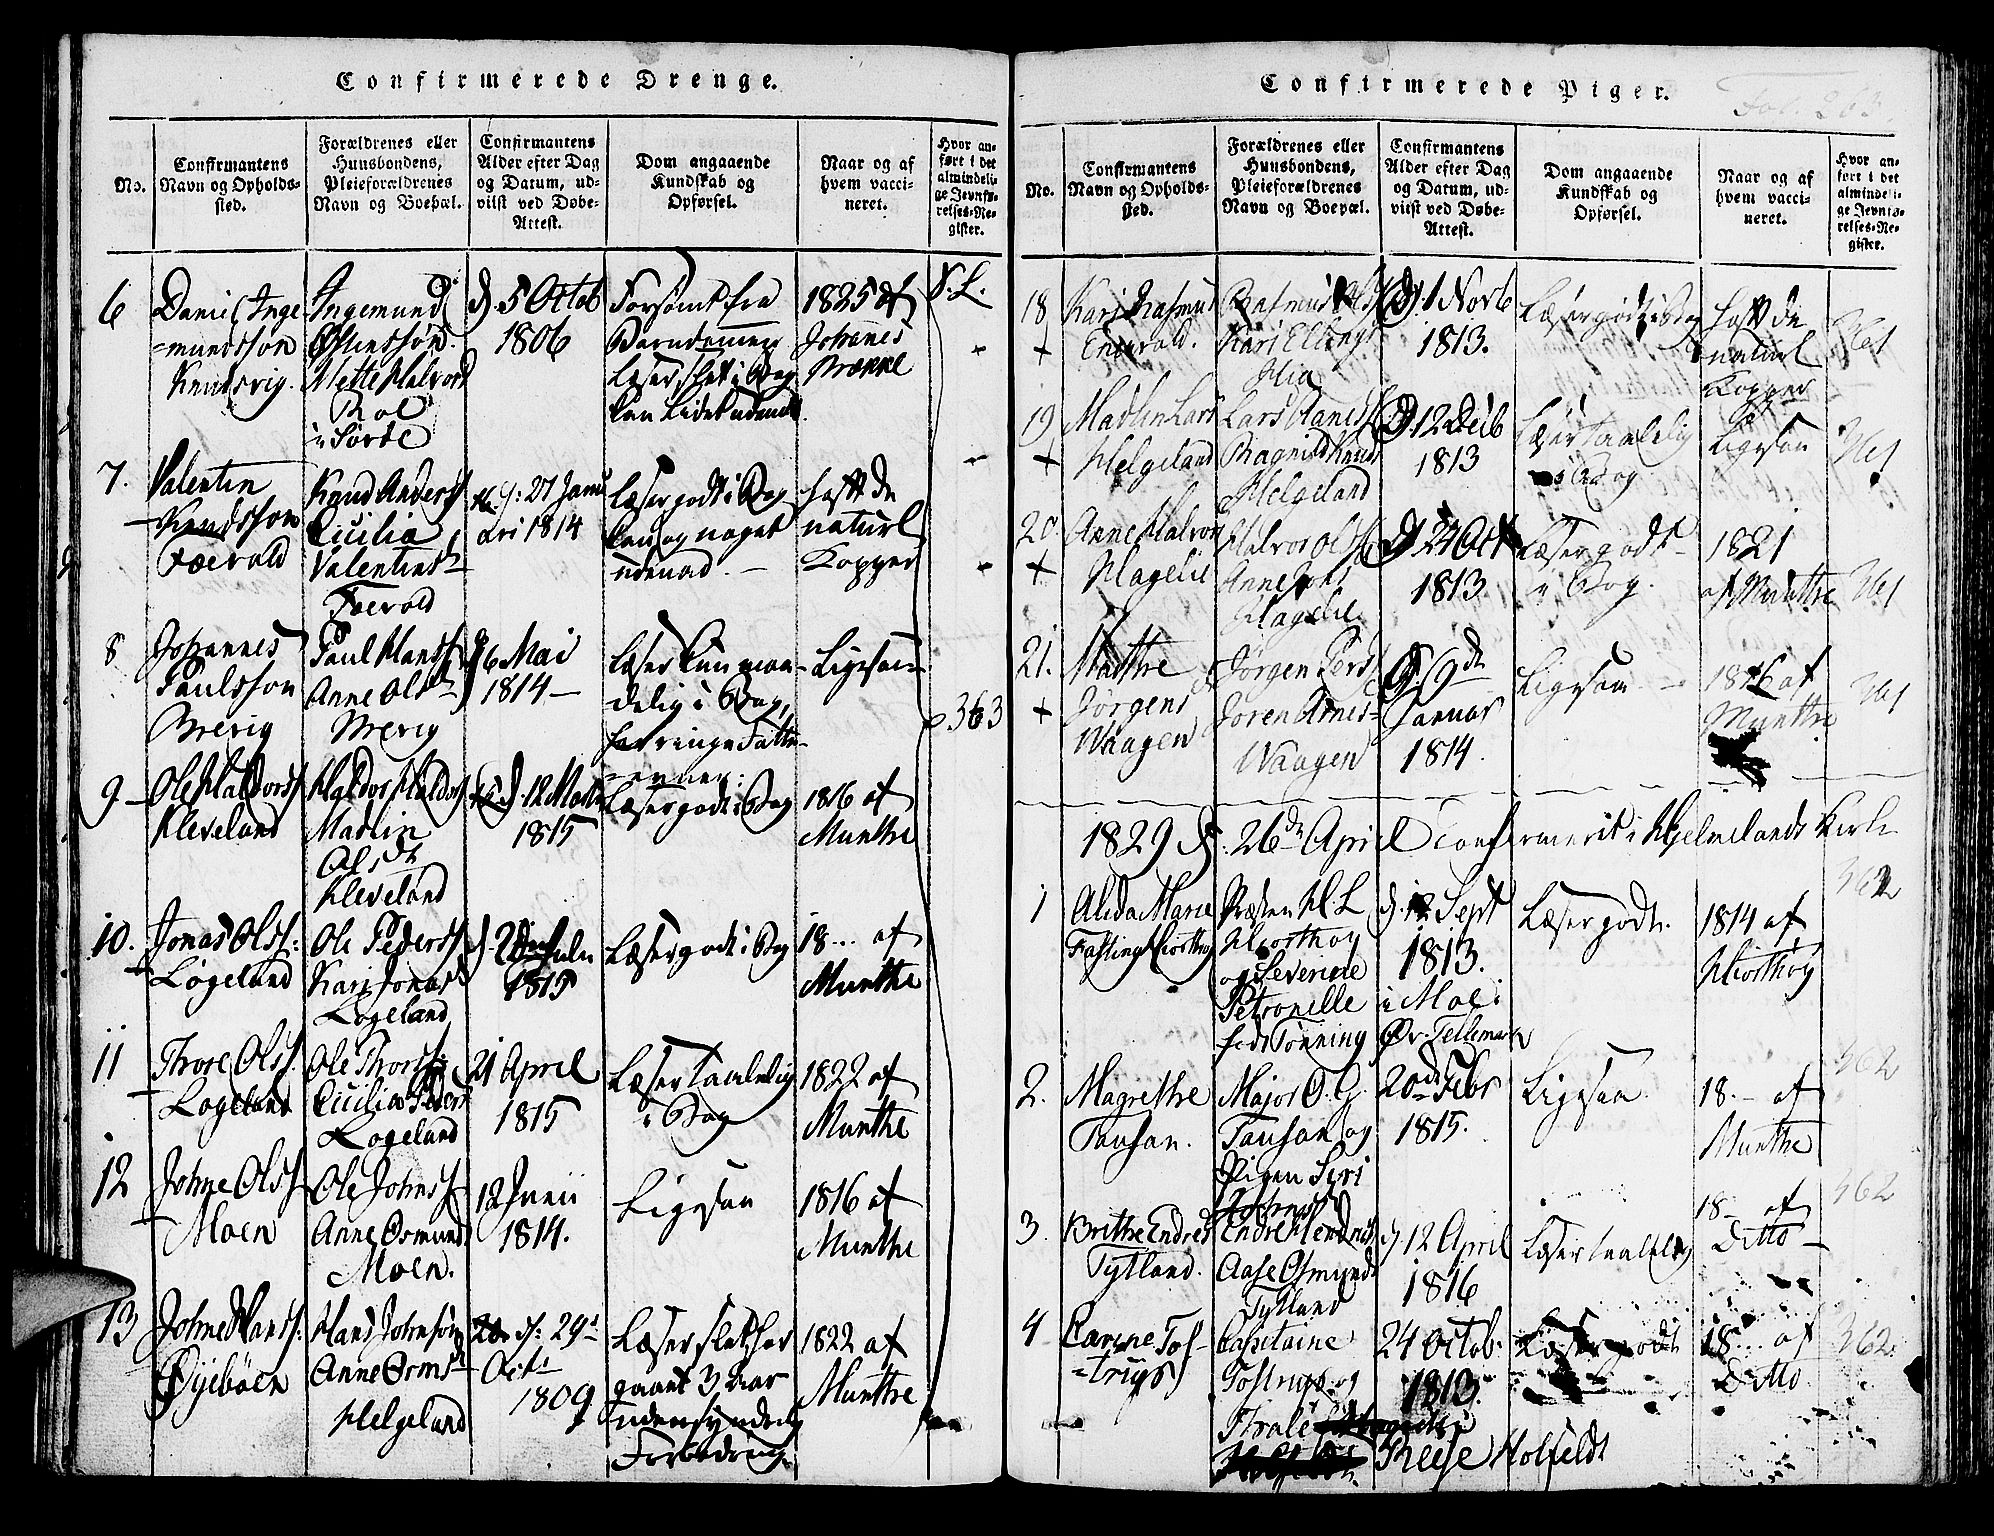 Confirmerede Drenge.
No.
Confirmantens
Navn og Opholds-
sted.
Forældrenes eller
Huusbondens,
Pleieforældrenes
Navn og Boepæl.
Confirmantens
Alder efter Dag
og Datum, ud-
viist ved Døbe-
Attest.
Dom angaaende
Kundskab og
Opførsel.
Naar og af
hvem vacci-
neret.
Hvor an-
ført i det
almindeli-
ge Jevnfø-
relses-Re-
gister.
6
Daniel Inge
=mundssøn
Knudsvig.
Ingemund
Østenssøn.
Mette Halvord
i Førde
d. 5 Octob
1806
Forsømt fra
Barndommen
Læser slet i Bog
1825 af
Johannes
Brekke
S. L.
7.
Valentin
Knudssøn
Foevold
Knud Anderss
Cicilia
Valentinsd
Foevold
d: 27 Janu
ari 1814
Læser godt i Bog
og noget
udenad. -
hatt de
naturl
Kopper
8
Johannes
Paulssøn
Brevig
Paul Hanss
Anne Olsd
Brevig
d 6 Mai
1814 -
Læser kun maa-
delig i Bog,
har ringe Fatte
=evner.
Ligesaa
p. 363
9
Ole Haldorss
Kleveland
Haldor Haldors
Madlin
Olsdt
Kleveland
d. 12 Marti
1815
Læser godt i Bog
1816 af
Munthe
10.
Jonas Olss:
Løgeland
Ole Pederss
Kari Jonasd
Løgeland
1815
Læser godt i Bog
18... af
Munthe
11
Thore Olss.
Løgeland
Ole Thorss
Cicilia Peders
Løgeland
21 April
1815
Læser taalelig
i Bog
1822 af
Munthe
12
Johne Olss
Moen
Ole Johnss
Anne Osmund
Moen.
12 Junii
1814.
Ligesaa
1816 af
Munthe
13
Johne Hanss.
Øyebøen
Hans Johnsøn
Anne Ormsd
Helgeland
d: 29d
Oct.
1809
Læser slet har
gaaet 3 Aar
uden synderlig
Forbedring
1822 af
Munthe
Confirmerede Piger.
Fol. 263.
No.
Confirmantens
Navn og Opholds-
sted.
Forældrenes eller
Huusbondens,
Pleieforældrenes
Navn og Boepæl.
Confirmantens
Alder efter Dag
og Datum, ud-
viist ved Døbe-
Attest.
Dom angaaende
Kundskab og
Opførsel.
Naar og af
hvem vacci-
neret.
Hvor an-
ført i det
almindeli-
ge Jevnfø-
relses-Re-
gister.
18
+
Kari Rasmus
Rasmus
Kari Ellings
Hia
d. 1 Novb
1813.
Læser godt i Bog
hatt de
naturl
Kopper
361
19
+
Madlin Lars
Helgeland
Lars Hanss
Ragnild Knuds
Helgeland
d. 12 Decb
1813
Læser taalelig
i Bog
Ligesaa
361
20.
+
Anne Halvor
Hagelie
Halvor Olss
Anne Johs
Hagelie
d 24 Oct
1813.
Læser godt
i Bog.
1821
af Munthe
361
21.
+
Malthe
Jørgens
Waagen
Jørgen Pers
Joren Arnes
Waagen
d. 9de
Januar
1814.
Ligesaa -
1816 af
Munthe
361
1829 d. 26de April Confirmerit i Hjelmelands Kirke
1
Alida Marie
Fasting Hiorthøy
Præsten H. L
Hiorthøy
og Severine
Petronelle
fød Tønning
d. 12 Sept
1813.
i Moe i
Øv. Tellemarken
Læser godt.
1814 af
Hiorthøy
362
2.
Magrethe
Tausan.
Major O. G.
Tausan og
Pigen Siri
20de Febr
1815.
Ligesaa
18.- af
Munthe
362
3.
Brithe Endres
Tytland.
Endre Hendrik
Aase Osmunds
Tytland
d 12 April
1816
Læser taalelig
18- af
Ditto
362
4
Carine Tos-
trups
Capitaine
Tostrups og
24 Octob.
1813
Læser godt
18... af
Ditto
362
Thrale
These Holfeldt